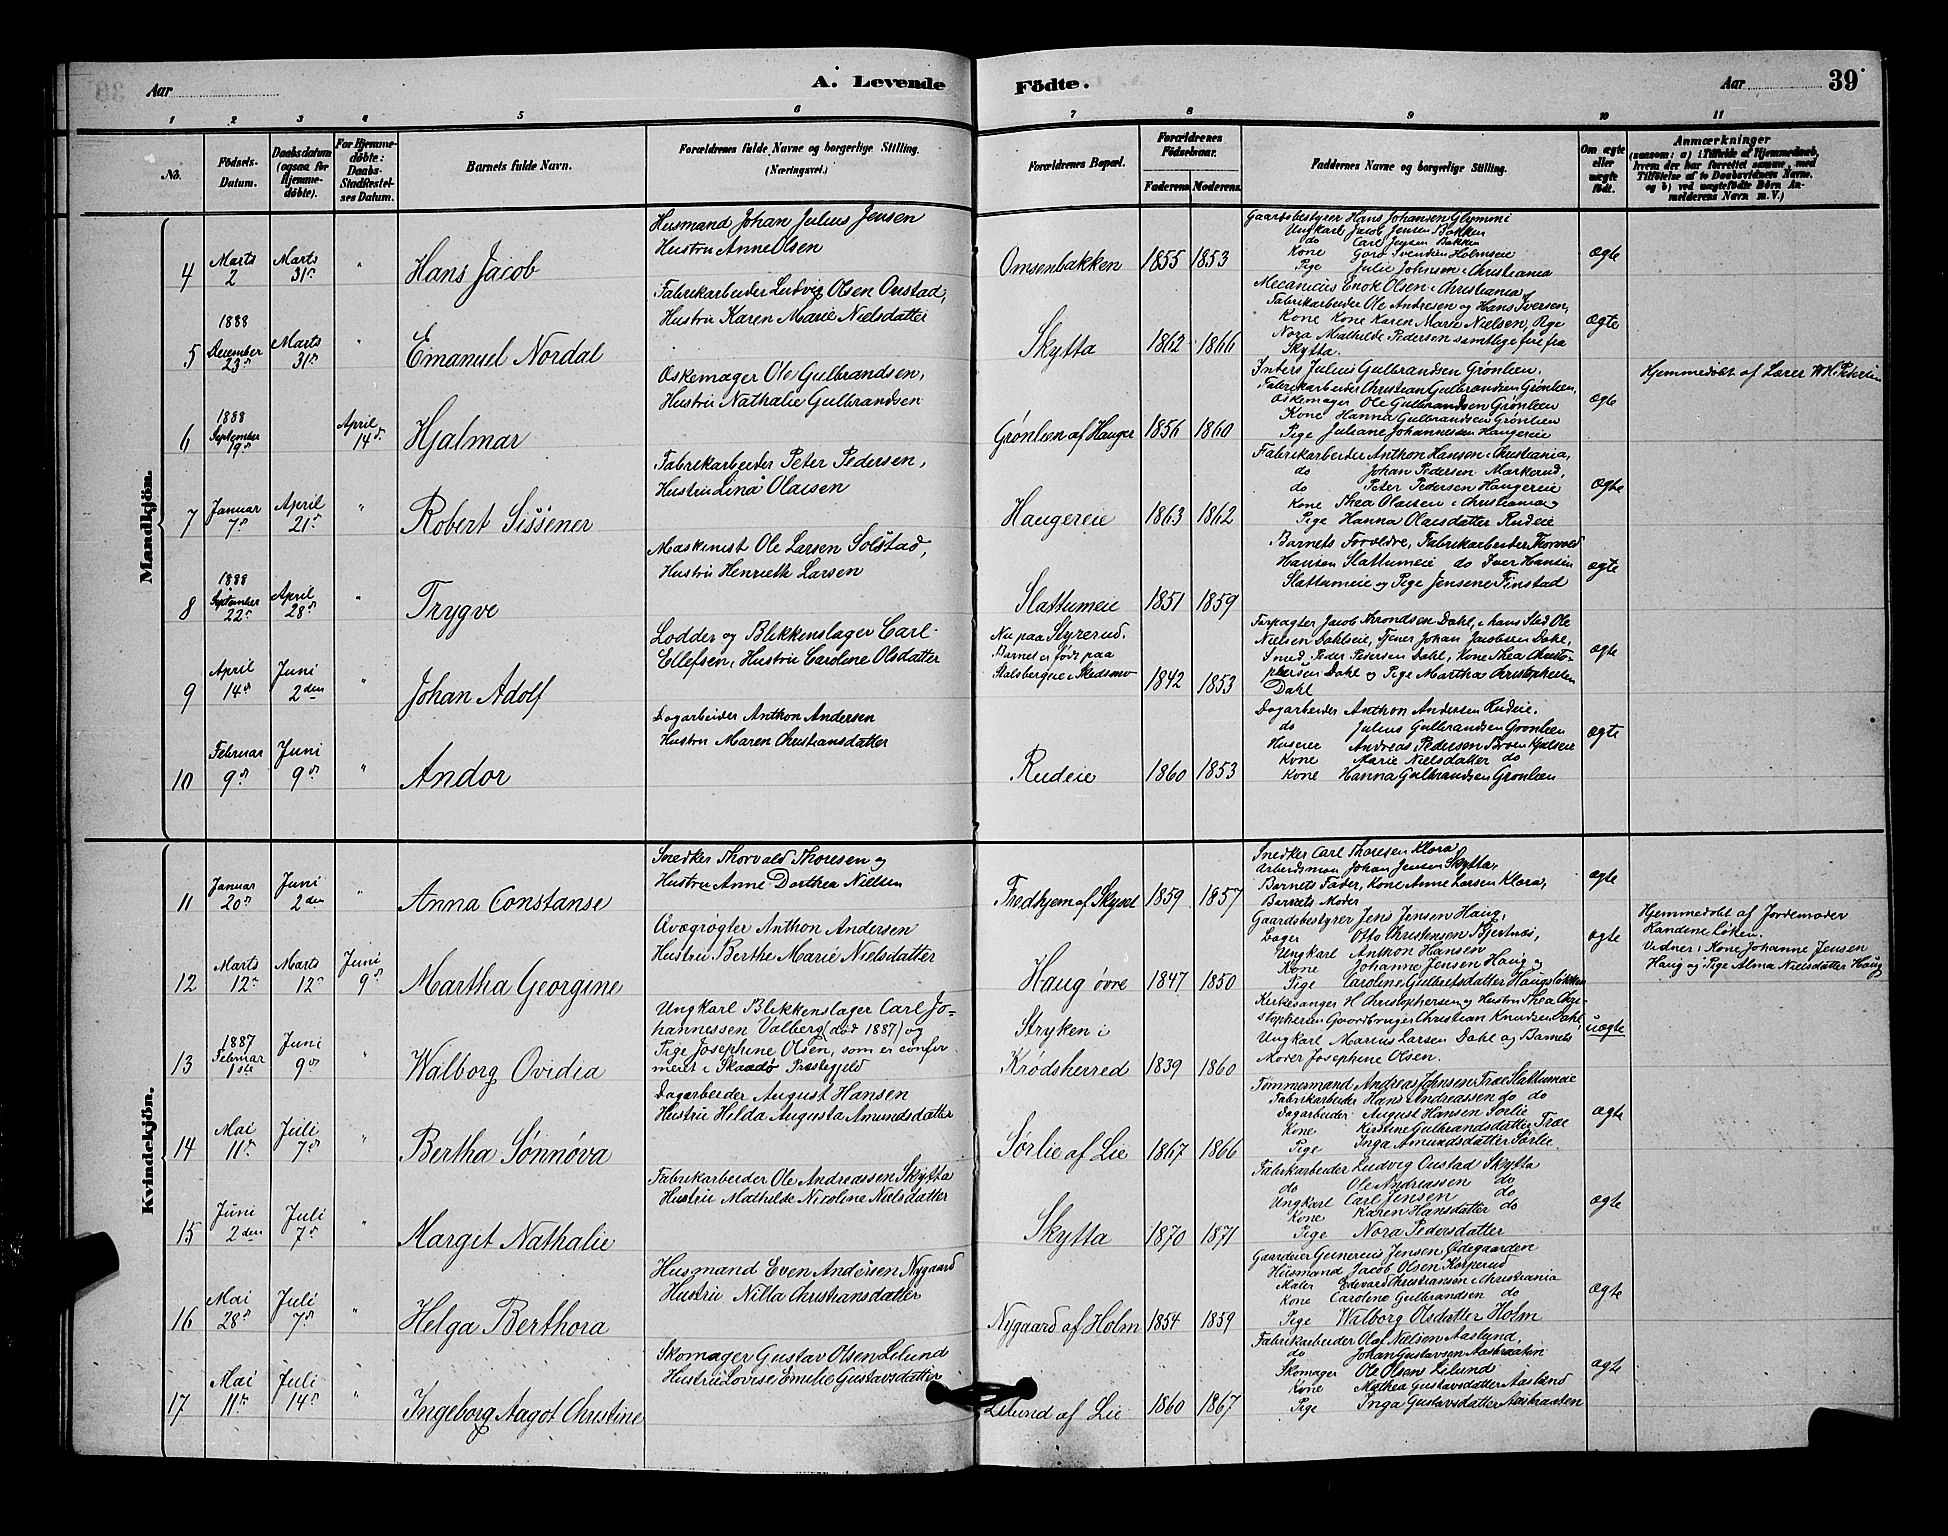 Aar
A. Levende
Födte.
Aar
39
1 2 3 4 5 6 7 8 9 10 11
No.
Födsels-
Datum.
Daabsdatum
(ogsaa for
Hjemme-
döbte).
For Hjemme-
döbte:
Daabs-
Stadfæstel-
ses Datum.
Barnets fulde Navn.
Forældrenes fulde Navne og borgerlige Stilling.
(Næringsvei.)
Forældrenes Bopæl.
Forældrenes
Födselsaar.
Faderens
Moderens
Faddernes Navne og borgerlige Stilling.
Om ægte
eller
uægte
födt.
Anmærkninger
(saasom: a) i Tilfælde af Hjemmedaab,
hvem der har forrettet samme, med
Tilföielse af to Daabsvidners Navne,
og b) ved uægtefödte Börn An-
melderens Navn m. V.)
Mandkjön.
4
Marts
2
Marts
31
"
Hans Jacob
Husmand Johan Julius Jensen
Hustru Anne Olsen
Omsenbakken
1855
1853
Gaardsbestyrer Hans Johansen Glymmi
Ungkarl Jacob Jensen Bakken
do Carl Jensen Bakken
Kone Goro Svensken Holmseie
Pige Julie Johnsen i Christiania
ægte
5
1888
December
23
Marts
31
"
Emanuel Nordal
Fabrikarbeider Ludvig Olsen Onstad,
Hustru Karen Marie Nielsdatter
Skytta
1862
1866
Mecanicus Enok Olsen i Christiania,
Fabrikarbeider Ole Andresen og Hans Iversen,
Kone Kone Karen Marie Nielsen, Pige
Nora Mathilde Pedersen samtlige fire fra
Skytta.
ægte
6
1888
September
19
April
14
Hjalmar
Oskemager Ole Gulbrandsen,
Hustru Nathalie Gulbrandsen
Grønleen af Hauger
1856
1860
Inders Julius Gulbrandsen Grønleen,
Fabrikarbeider Christian Gulbrandsen Grønleen,
Oskemager Ole Gulbrandsen Grønleen
Kone Hanna Gulbrandsen Grønleen
Pige Juliane Johannesen Haugereie
ægte
Hjemmedøbt af Lærer W.H. Pedersen
7
Januar
7
April
21
"
Robert Sissener
Fabrikarbeider Peter Pedersen,
Hustru Lina Olaisen
Haugereie
1863
1862
Fabrikarbeider Anthon Hansen i Christiania,
do Johan Pedersen Markerud,
do Peter Pedersen Haugereie
Kone Thea Olaisen i Christiania
Pige Hanna Olaisdatter Rudeie
ægte
8
1888
September
22
April
28
"
Trygve
Maskinist Ole Larsen Solstad,
Hustru Henrieth Larsen
Slattumeie
1851
1859
Barnets Forældre, Fabrikarbeider Thorvald
Hansen Slattumeie do Iver Hansen
Slattumeie og Pige Jensene Finstad
ægte
9
April
14
Juni
2den
"
Johan Adolf
Lodder og Blikkenslager Carl
Ellefsen, Hustru Caroline Olsdatter
Nu paa Styrerud.
Barnet er født paa
Stalsbergeie i Skedsmo
1842
1853
Forpagter Jacob Throndsen Dahl, i hans Sted Ole
Nielsen Dahleie, Tjener Johan Jacobsen Dahl,
Smed Peder Pedersen Dahl, Kone Thea Christo-
phersen Dahl og Pige Martha Christophersen
Dahl
ægte
10
Februar
9
Juni
9
"
Andor
Dagarbeider Anthon Andersen
Hustru Maren Christiansdatter
Rudeie
1860
1853
Dagarbeider Anthon Andersen Rudeie.
do Julius Gulbrandsen Grønleen
Huseier Andreas Pedersen Kjulseie
Kone Marie Nielsdatter do
Kone Hanna Gulbrandsen Grønleen
ægte
Kvindekjön.
11
Januar
20
Juni
2den
"
Anna Constanse
Snedker Thorvald Thoresen og
Hustru Anne Dorthea Nielsen
Fredhjem af Skyset
1859
1857
Snedker Carl Thoresen Klora,
Arbeidsman Johan Jensen Skytta,
Barnets Fader, Kone Anne Larsen Klora,
Barnets Moder
ægte
12
Marts
12
Marts
12
Juni
9
Martha Georgine
Qvægrøgter Anthon Andersen
Hustru Berthe Marie Nielsdatter
Haug øvre
1847
1850
Gaardsbestyrer Jens Jensen Haug,
Bager Otto Christensen Bjertnæs,
Ungkarl Anthon Hansen
Kone Johanne Jensen Haug og
Pige Caroline Gulbrandsdatter Haugsløkken
ægte
Hjemmedøbt af Jordemoder
Randene Løken.
Vidner: Kone Johanne Jensen
Haug og Pige Alma Nielsdatter Haug
13
1887
Februar
1ste
Juni
9
"
Walborg Ovidia
Ungkarl Blikkenslager Carl Jo-
hannessen Valberg (død 1887) og
Pige Josephine Olsen, som er confir
meret i Skaadø Præstegjeld
Stryken i
Krødsherred
1839
1860
Kirkesanger H Christophersen og Hustru Thea Chri-
stophersen Gaardbruger Christian Knudsen Dahl,
Ungkarl Marius Larsen Dahl og Barnets
Moder Josephine Olsen.
uægte
14
Mai
11
Juli
7
"
Bertha Sønnøva
Dagarbeider August Hansen
Hustru Hilda Augusta Amundsdatter
Sørlie af Lie
1867
1866
Tømmermand Andreas Johnsen Træ Slattumeie
Fabrikarbeider Hans Andreassen do do
Dagarbeider August Hansen Sørlie
Kone Kirstine Gulbrandsdatter Træ
Pige Inga Amundsdatter Sørlie
ægte
15
Juni
2den
Juli
7
"
Margit Nathalie
Fabrikarbeider Ole Andreassen Skytta
Hustru Mathilde Nicoline Nielsdatter
Skytta
1870
1871
Fabrikarbeider Ludvig Onstad Skytta
do Ole Andreassen do
Ungkarl Carl Jensen do
Kone Karen Hansdatter do
Pige Nora Pedersdatter
ægte
16
Mai
28
Juli
7
"
Helga Berthora
Husmand Even Andersen Nygaard
Hustru Nilla Christiansdatter
Nygaard af Holm
1854
1859
Gaardeier Gunerius Jensen Ødegaarden
Husmand Jacob Olsen Korperud
Maler Edvard Christiansen i Christiania
Kone Caroline Gulbrandsen do
Pige Walborg Olsdatter Holm
ægte
17
Mai
11
Juli
14
"
Ingeborg Aagot Christine
Skomager Gustav Olsen Lilund
Hustru Lovise Emilie Gustavsdatter
Lilund af Lie
1860
1867
Fabrikarbeider Olaf Nielsen Aaslund,
do Johan Gustavsen Aasbraaten
Skomager Ole Olsen Lilund
Kone Mathea Gustavsdatter Aaslund
Pige Inga Gustavsdatter Aasbraaten
ægte